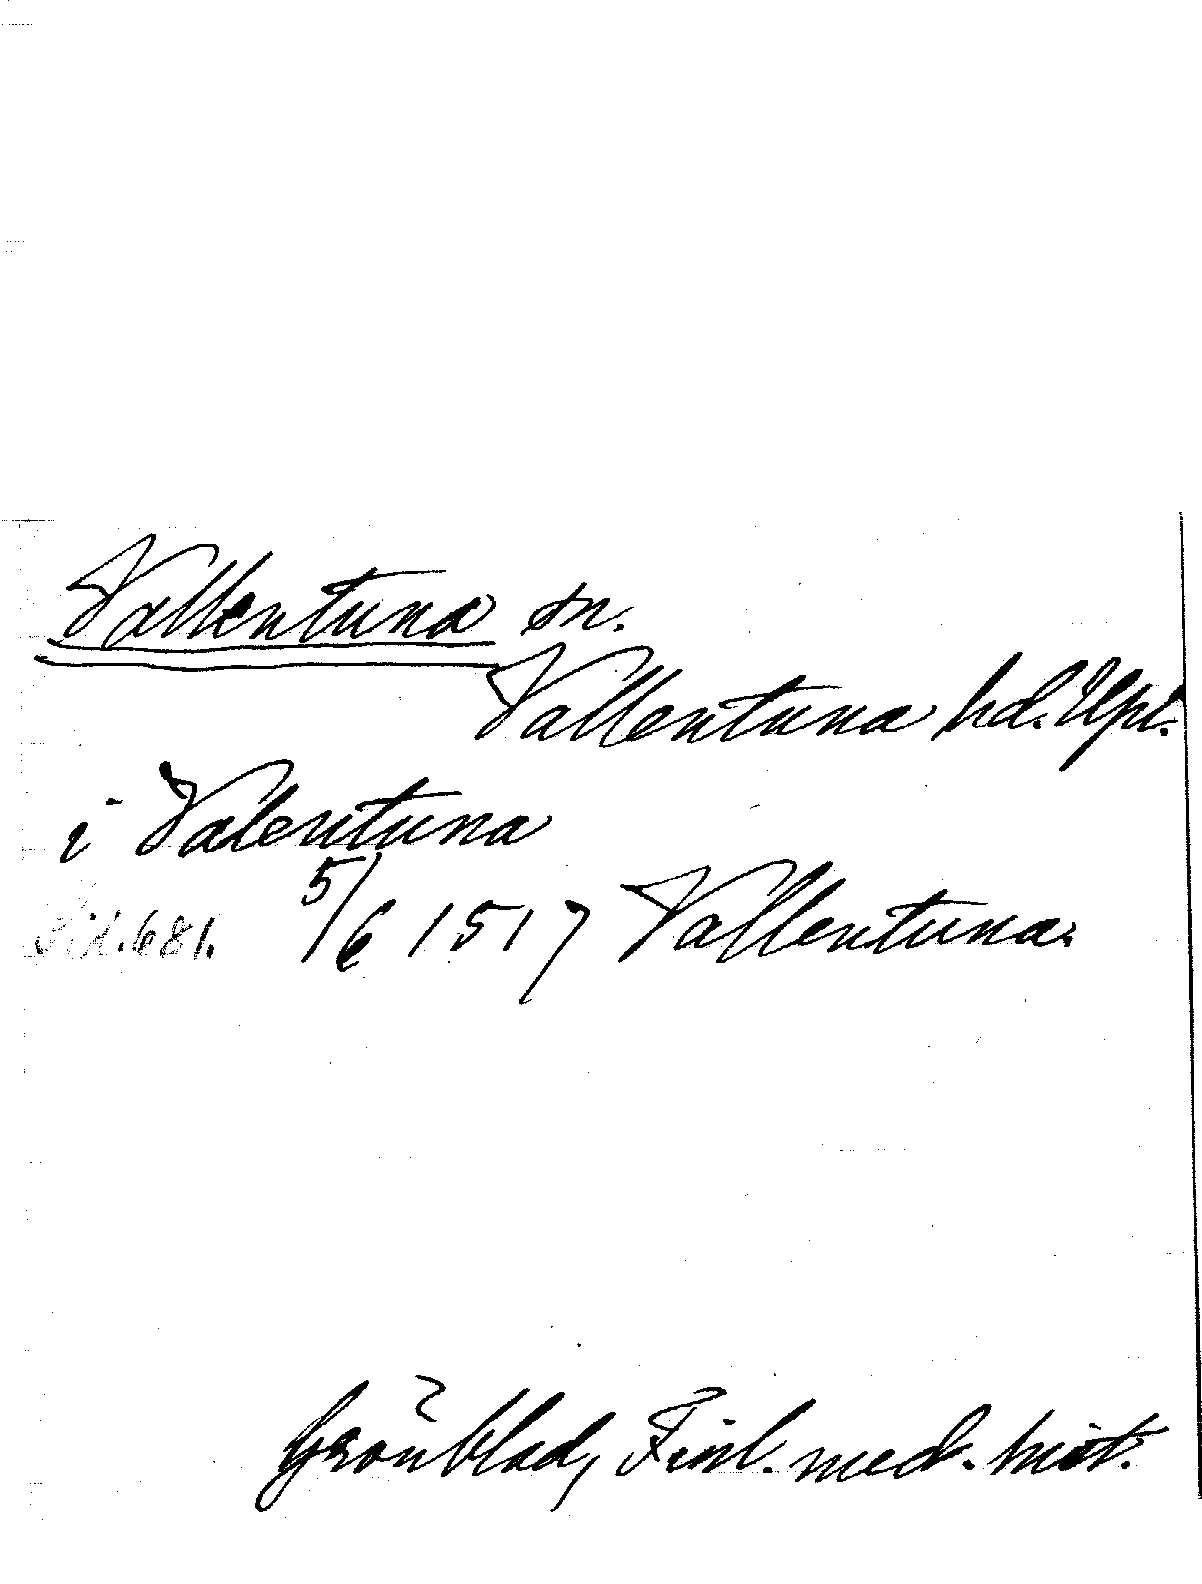 Vallentuna sn.
Vallentuna hd. Upl.
i Valentuna
Sid. 681. 5/6 1517 Vallentuna.
Grönblad, Finl. med. hist.